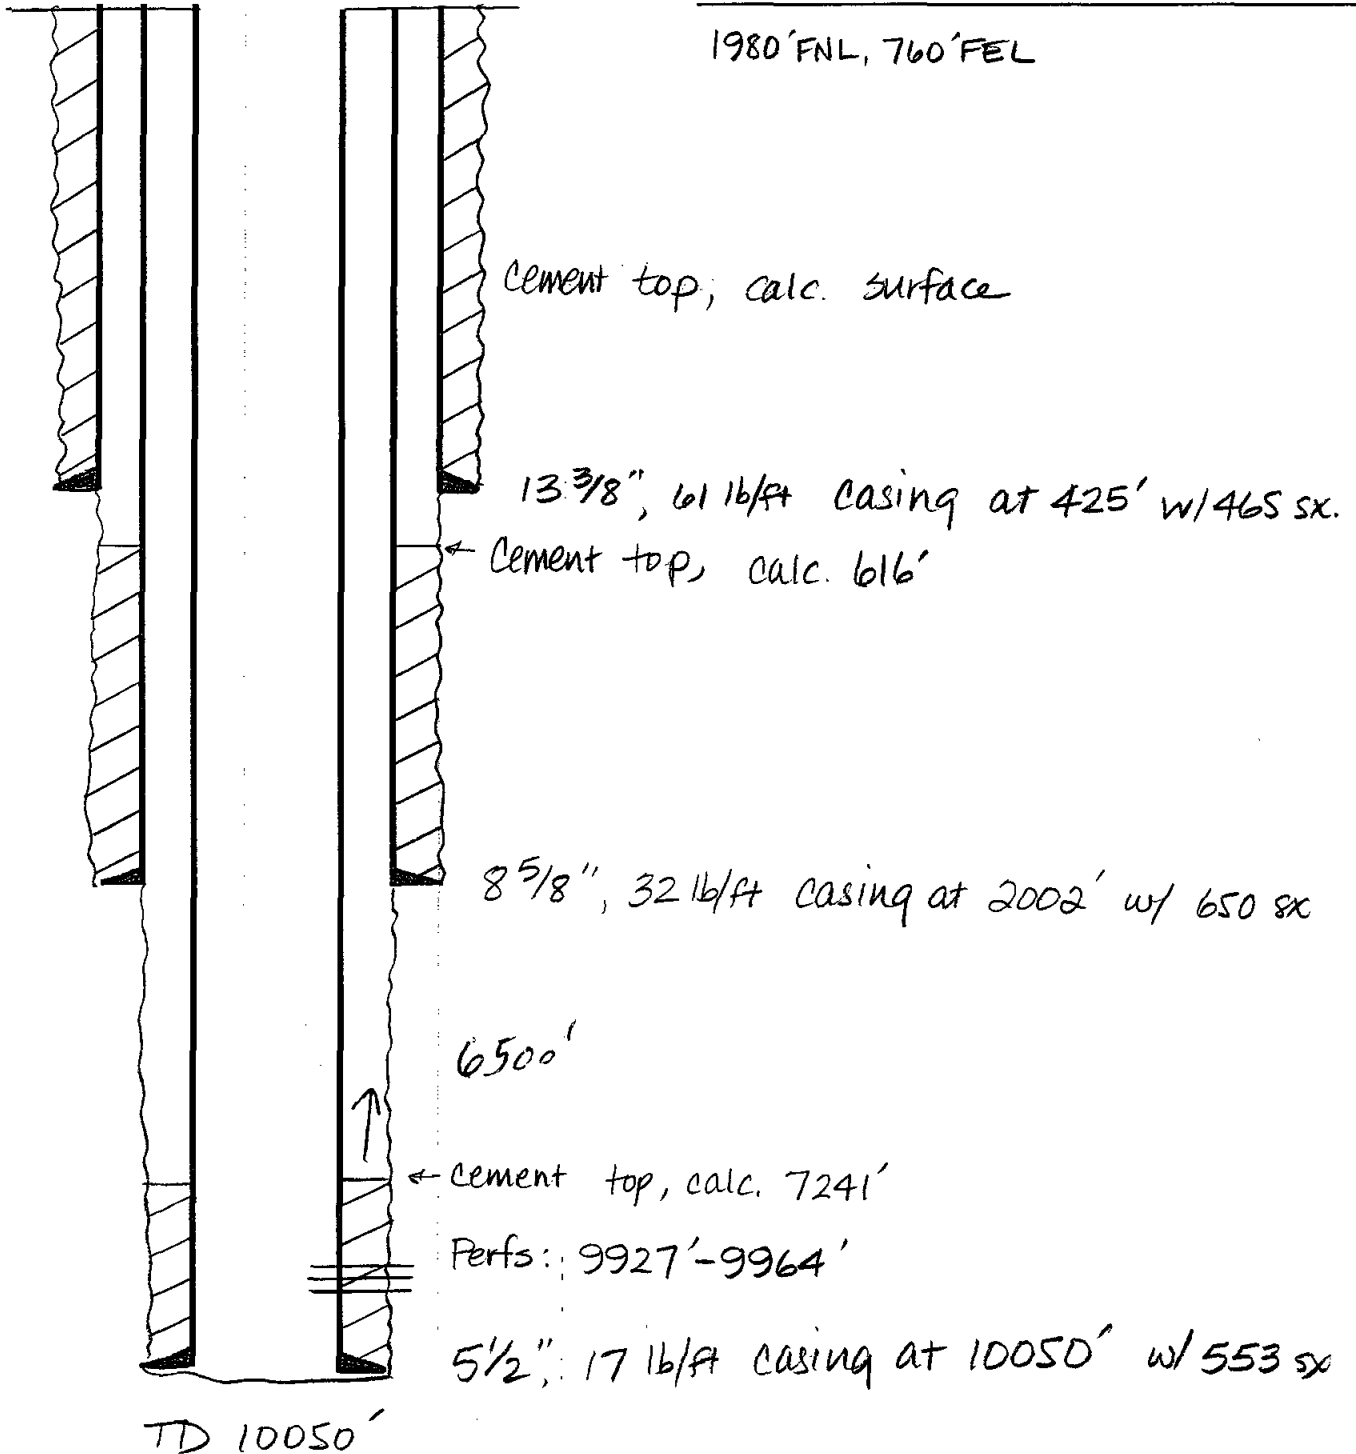 1980' FNL, 760' FEL
cement top, calc. surface
13 3/8", 61 lb/ft casing at 425' w/ 465 sx.
← cement top, calc. 616'
8 5/8", 32 lb/ft casing at 2002' w/ 650 sx
6500'
← cement top, calc. 7241'
Perfs: 9927'-9964'
5 1/2", 17 lb/ft casing at 10050' w/ 553 sx
TD 10050'